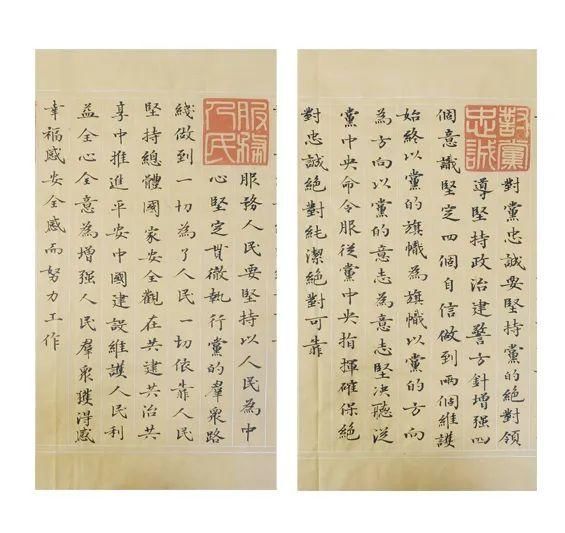 對黨
忠誠
對黨忠誠要堅持黨的絕對領
導堅持政治建警方針增强四
個意識堅定四個自信做到兩個維護
始終以黨的旗幟為旗幟以黨的方向
為方向以黨的意志為意志堅决聽從
黨中央命令服從黨中央指揮確保絕
對忠誠絕對純潔絕對可靠
服務
人民
服務人民要堅持以人民為中
心堅定貫徹執行黨的羣衆路
綫做到一切為了人民一切依靠人民
堅持總體國家安全觀在共建共治共
享中推進平安中國建設維護人民利
益全心全意為增强人民羣衆獲得感
幸福感安全感而努力工作